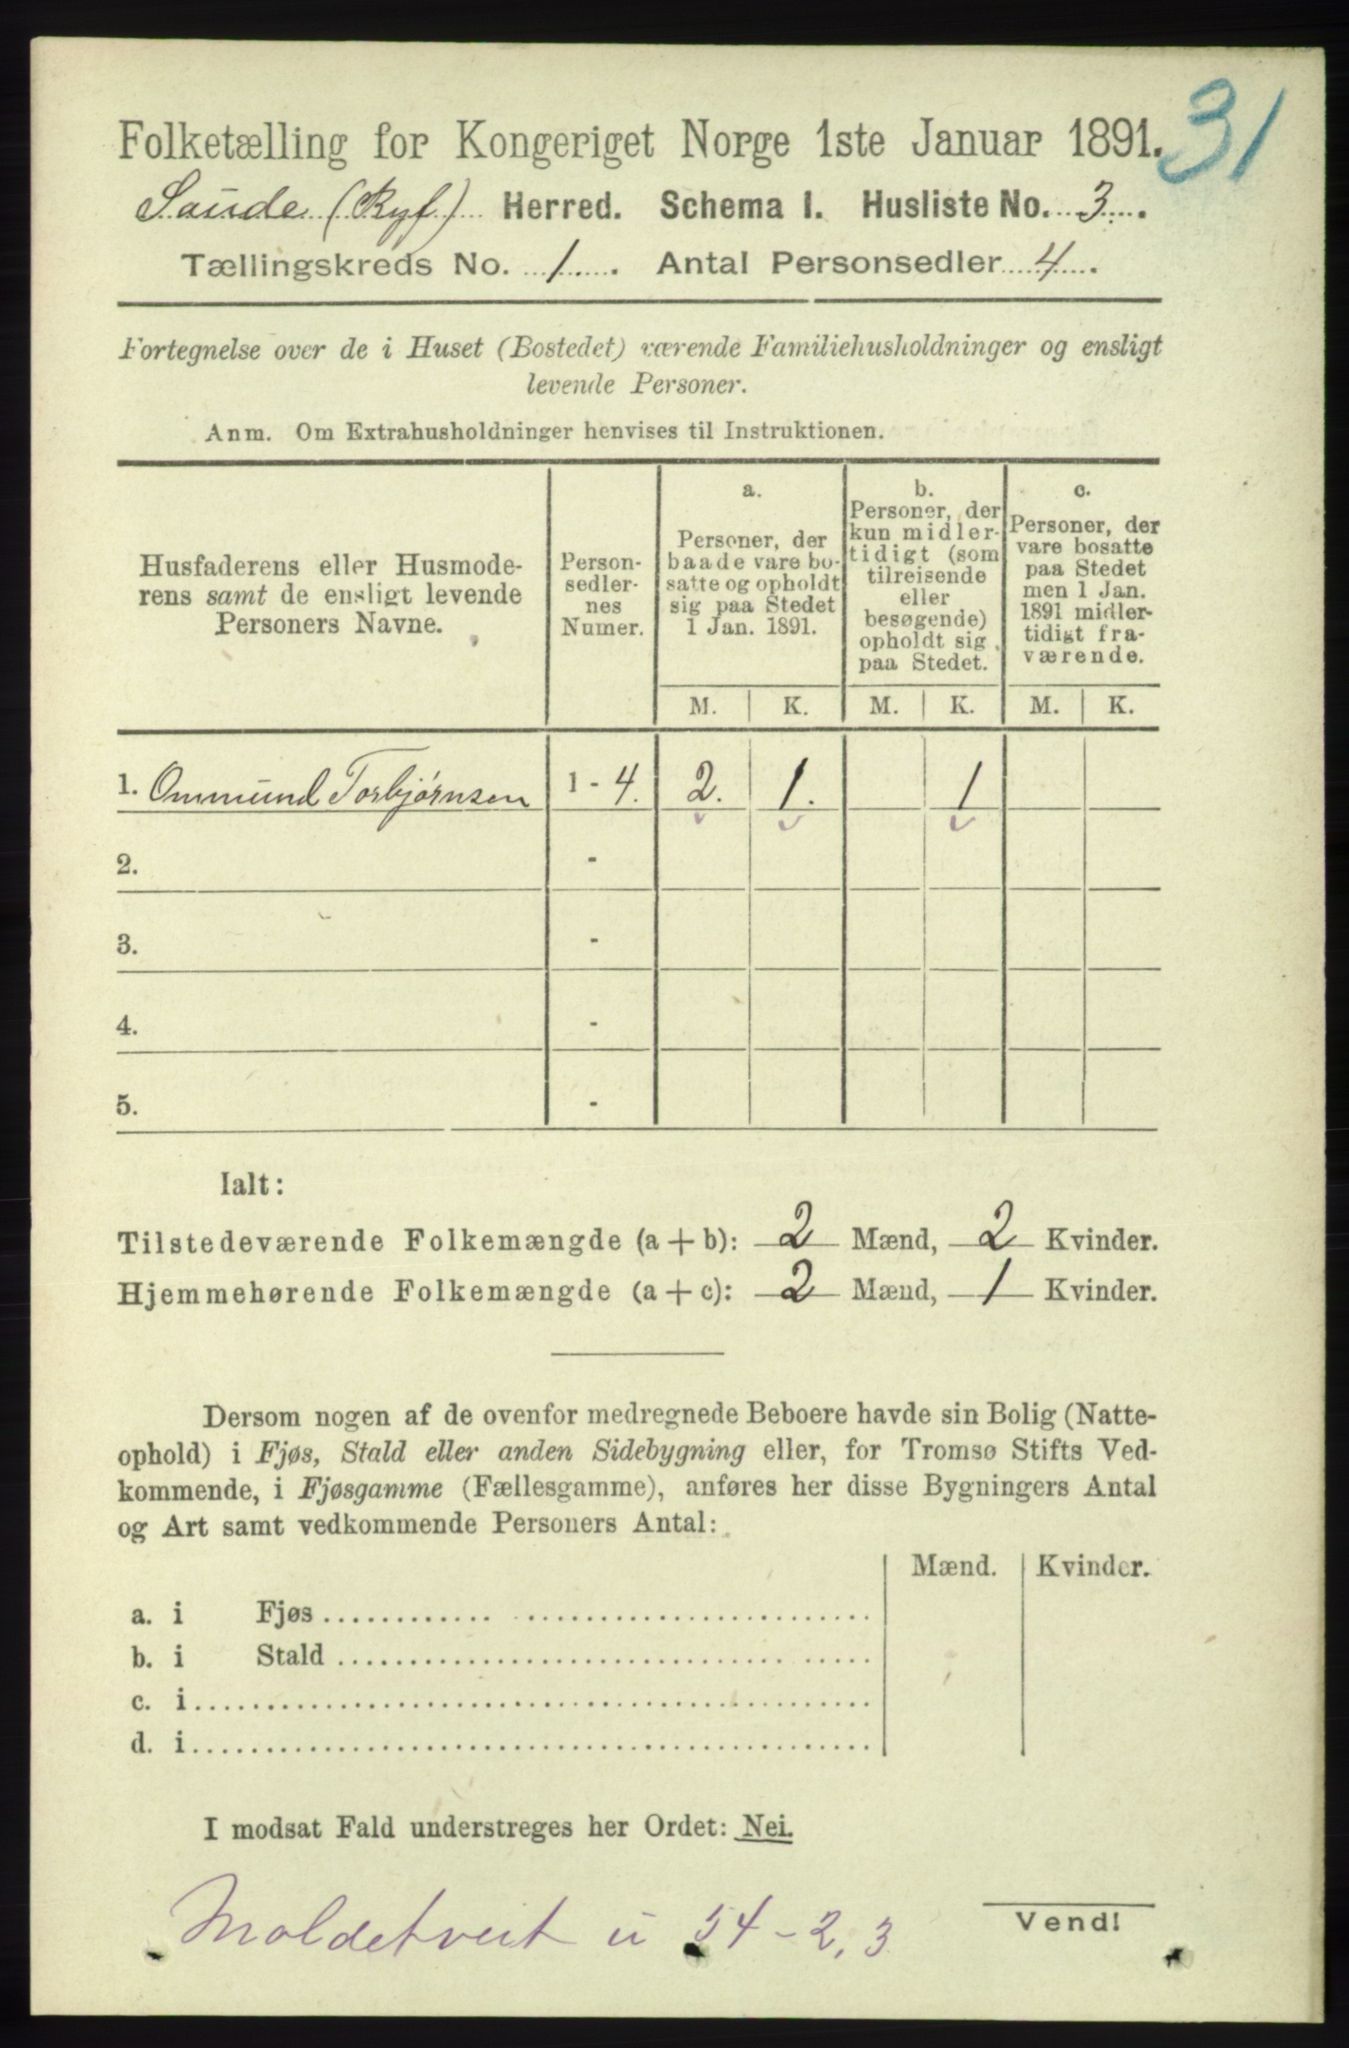 31
Folketælling for Kongeriget Norge 1ste Januar 1891.
Saude (Ryf.) Herred. Schema I. Husliste No. 3.
Tællingskreds No. 1. Antal Personsedler 4.
Fortegnelse over de i Huset (Bostedet) værende Familiehusholdninger og ensligt
levende Personer.
Anm. Om Extrahusholdninger henvises til Instruktionen.
Husfaderens eller Husmode-
rens samt de ensligt levende
Personers Navne.
Person-
sedler-
nes
Numer.
a.
Personer, der
baade vare bo-
satte og opholdt
sig paa Stedet
1 Jan. 1891.
b.
Personer, der
kun midler-
tidigt (som
tilreisende
eller
besøgende)
opholdt sig
paa Stedet.
c.
Personer, der
vare bosatte
paa Stedet
men 1 Jan.
1891 midler-
tidigt fra-
værende.
M. K. M. K. M. K.
1. Ommund Torbjørnsen 1 - 4. 2. 1. 1
2. -
3. -
4. -
5. -
Ialt:
Tilstedeværende Folkemængde (a + b): 2 Mænd, 2 Kvinder.
Hjemmehørende Folkemængde (a + c): 2 Mænd, 1 Kvinder.
Dersom nogen af de ovenfor medregnede Beboere havde sin Bolig (Natte-
ophold) i Fjøs, Stald eller anden Sidebygning eller, for Tromsø Stifts Ved-
kommende, i Fjøsgamme (Fællesgamme), anføres her disse Bygningers Antal
og Art samt vedkommende Personers Antal:
Mænd. Kvinder.
a. i Fjøs
b. i Stald
c. i
d. i
I modsat Fald understreges her Ordet: Nei.
Moldetveit u 54 - 2, 3
Vend!